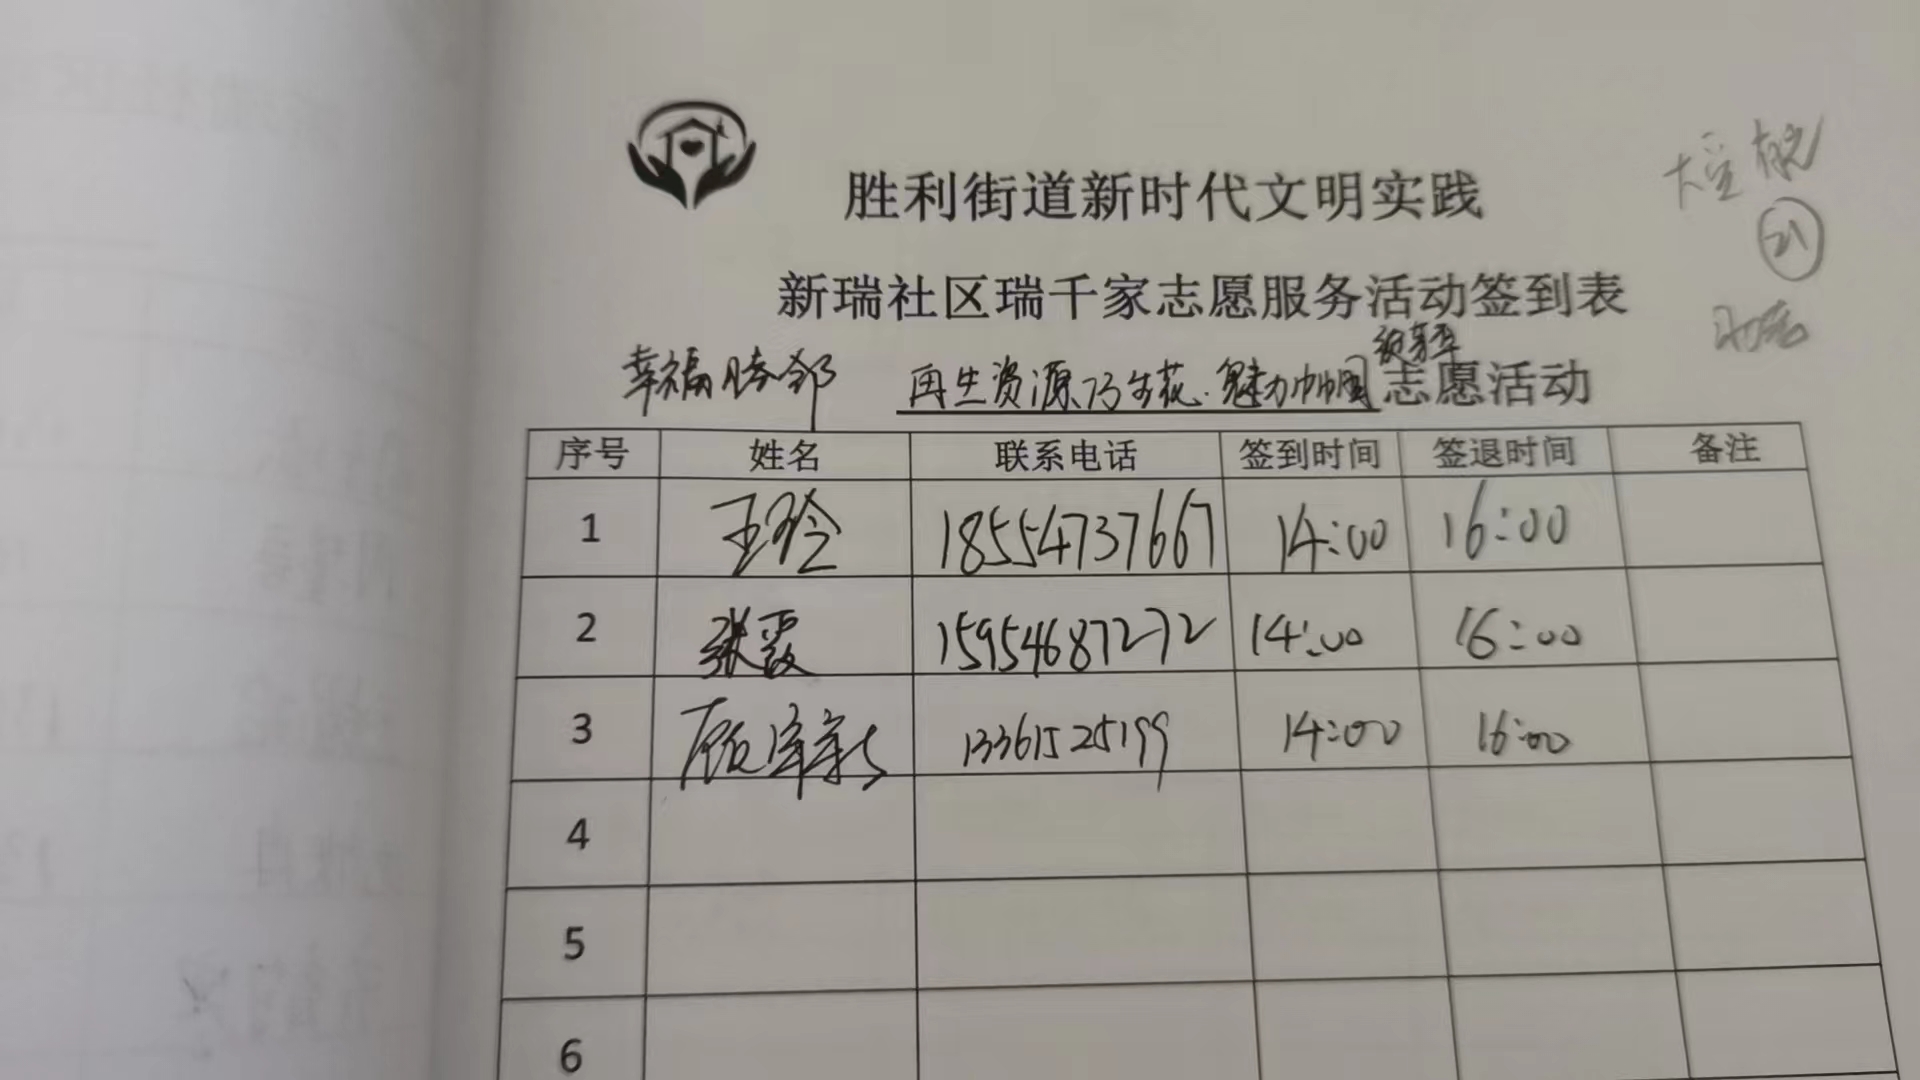 胜利街道新时代文明实践
新瑞社区瑞千家志愿服务活动签到表
幸福胜邻 再生资源巧生花·魅力巾帼 志愿活动
序号 姓名 联系电话 签到时间 签退时间 备注
1 王玲 18554737667 14:00 16:00
2 张霞 15954687272 14:00 16:00
3 顾 13361525199 14:00 16:00
4
5
6